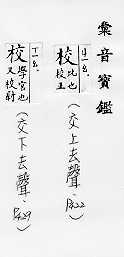 彙音寶鑑
ㄐㄧㄠ.
校
比也
校正
(交上去聲. P.422
)
ㄒㄧㄠ.
校
學宮也
又校尉
(交下去聲. P.429
)